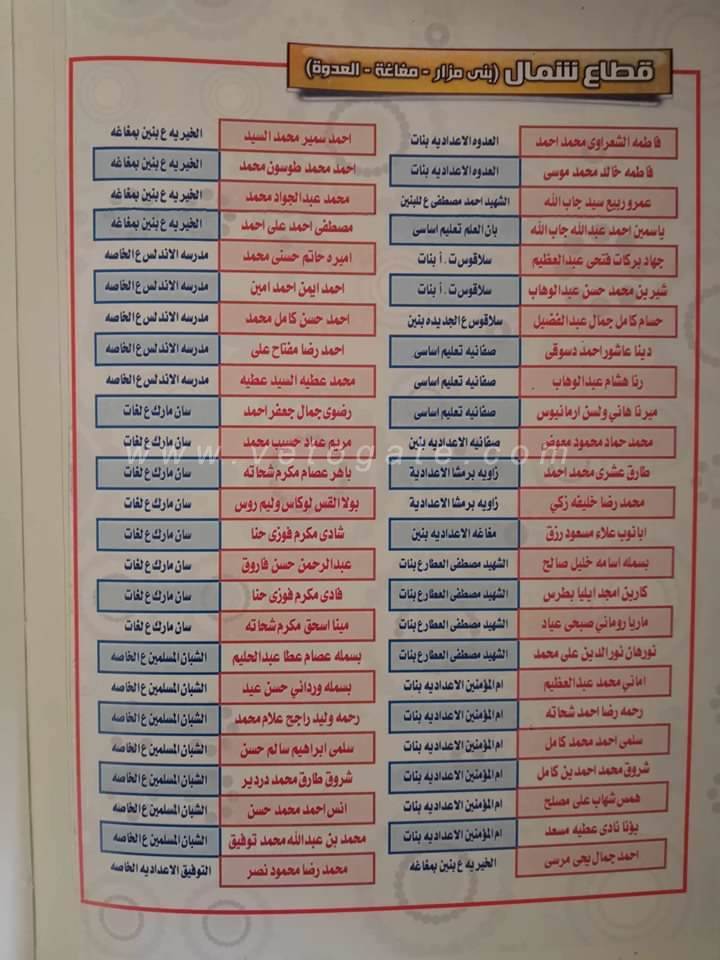 قطاع شمال (بنى مزار - مغاغة - العدوة)
فاطمه الشعراوى محمد احمد العدوه الاعداديه بنات
فاطمه خالد محمد موسى العدوه الاعداديه بنات
عمرو ربيع سيد جاب الله الشهيد احمد مصطفى ع للبنين
ياسمين احمد عبدالله جاب الله بان العلم تعليم اساسى
جهاد بركات فتحى عبدالعظيم سلاقوس ت.أ بنات
شيرين محمد حسن عبدالوهاب سلاقوس ت.أ بنات
حسام كامل جمال عبدالفضيل سلاقوس ع الجديده بنين
دينا عاشور احمد دسوقى صفانيه تعليم اساسى
رنا هشام عبدالوهاب صفانيه تعليم اساسى
ميرنا هاني ولسن ارمانيوس صفانيه تعليم اساسى
محمد حماد محمود معوض صفانيه الاعداديه بنين
طارق عشرى محمد احمد زاويه برمشا الاعدادية
محمد رضا خليفه زكي زاويه برمشا الاعدادية
ابانوب علاء مسعود رزق مغاغه الاعداديه بنين
بسمله اسامه خليل صالح الشهيد مصطفى العطار ع بنات
كارين امجد ايليا بطرس الشهيد مصطفى العطار ع بنات
ماريا روماني صبحى عياد الشهيد مصطفى العطار ع بنات
نورهان نورالدين على محمد الشهيد مصطفى العطار ع بنات
اماني محمد عبدالعظيم ام المؤمنين الاعداديه بنات
رحمه رضا احمد شحاته ام المؤمنين الاعداديه بنات
سلمى احمد محمد كامل ام المؤمنين الاعداديه بنات
شروق محمد احمد بن كامل ام المؤمنين الاعداديه بنات
همس شهاب على مصلح ام المؤمنين الاعداديه بنات
يؤنا نادى عطيه مسعد ام المؤمنين الاعداديه بنات
احمد جمال يحى مرسى الخيريه ع بنين بمغاغه
احمد سمير محمد السيد الخيريه ع بنين بمغاغه
احمد محمد طوسون محمد الخيريه ع بنين بمغاغه
محمد عبدالجواد محمد الخيريه ع بنين بمغاغه
مصطفى احمد على احمد الخيريه ع بنين بمغاغه
اميره حاتم حسنى محمد مدرسه الاندلس ع الخاصه
احمد ايمن احمد امين مدرسه الاندلس ع الخاصه
احمد حسن كامل محمد مدرسه الاندلس ع الخاصه
احمد رضا مفتاح على مدرسه الاندلس ع الخاصه
محمد عطيه السيد عطيه مدرسه الاندلس ع الخاصه
رضوى جمال جعفر احمد سان مارك ع لغات
مريم عماد حسيب محمد سان مارك ع لغات
باهر عصام مكرم شحاته سان مارك ع لغات
بولا القس لوكاس وليم روس سان مارك ع لغات
شادى مكرم فوزى حنا سان مارك ع لغات
عبدالرحمن حسن فاروق سان مارك ع لغات
فادى مكرم فوزى حنا سان مارك ع لغات
مينا اسحق مكرم شحاته سان مارك ع لغات
بسمله عصام عطا عبدالحليم الشبان المسلمين ع الخاصه
بسمله ورداني حسن عيد الشبان المسلمين ع الخاصه
رحمه وليد راجح علام محمد الشبان المسلمين ع الخاصه
سلمى ابراهيم سالم حسن الشبان المسلمين ع الخاصه
شروق طارق محمد دردير الشبان المسلمين ع الخاصه
انس احمد محمد حسن الشبان المسلمين ع الخاصه
محمد بن عبدالله محمد توفيق الشبان المسلمين ع الخاصه
محمد رضا محمود نصر التوفيق الاعداديه الخاصه
www.vetogate.com